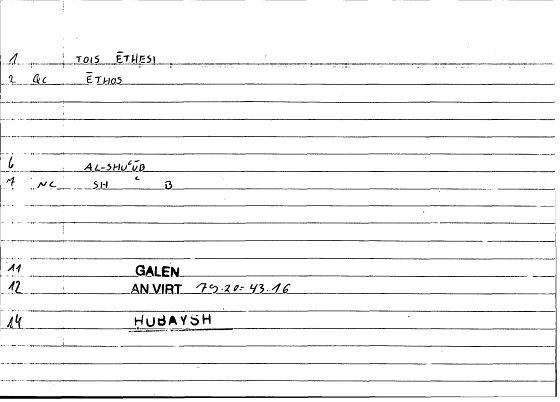 1 TOIS ĒTHESI
2 Qc ĒTHOS
6 AL-SHUʿŪB
7 NC SH ʿ B
11 GALEN
12 AN VIRT 79.20 = 43.16
14 HUBAYSH